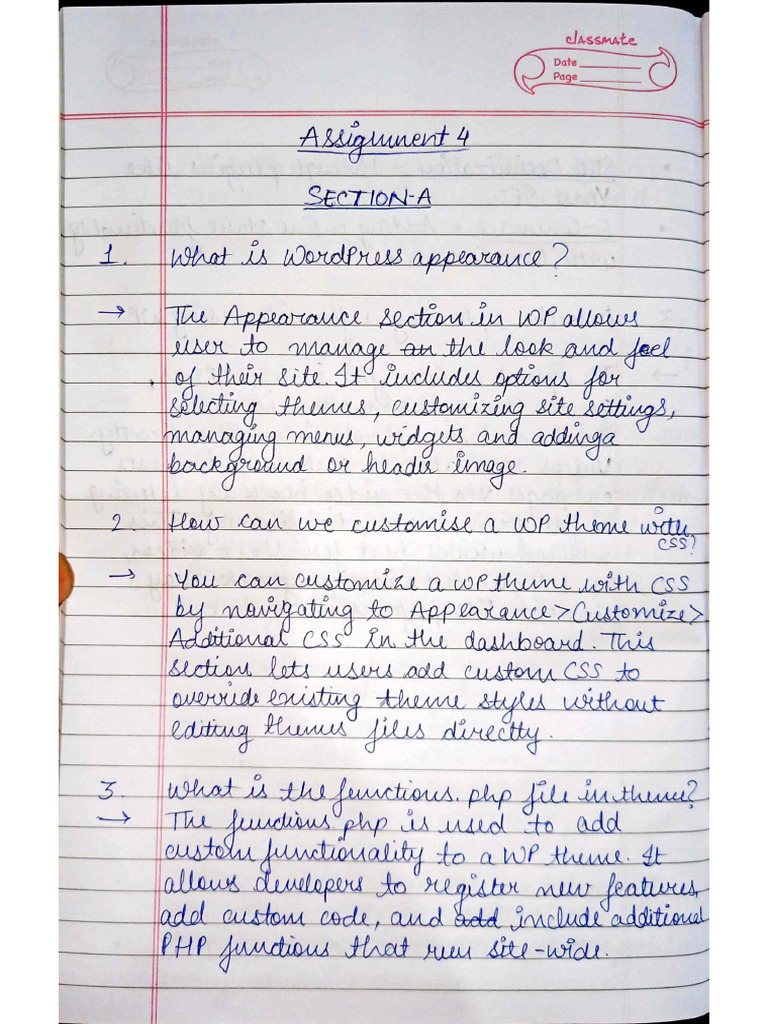 classmate
Date
Page
Assignment 4
SECTION-A
1. What is WordPress appearance?
→ The Appearance section in WP allows
user to manage an the look and feel
of their site. It includes options for
selecting themes, customizing site settings,
managing menus, widgets and adding a
background or header image.
2. How can we customise a WP theme with
CSS?
→ You can customize a WP theme with CSS
by navigating to Appearance > Customize >
Additional CSS in the dashboard. This
section lets users add custom CSS to
override existing theme styles without
editing themes files directly.
3. What is the functions.php file in theme?
→ The functions.php is used to add
custom functionality to a WP theme. It
allows developers to register new features,
add custom code, and add include additional
PHP functions that run site-wide.